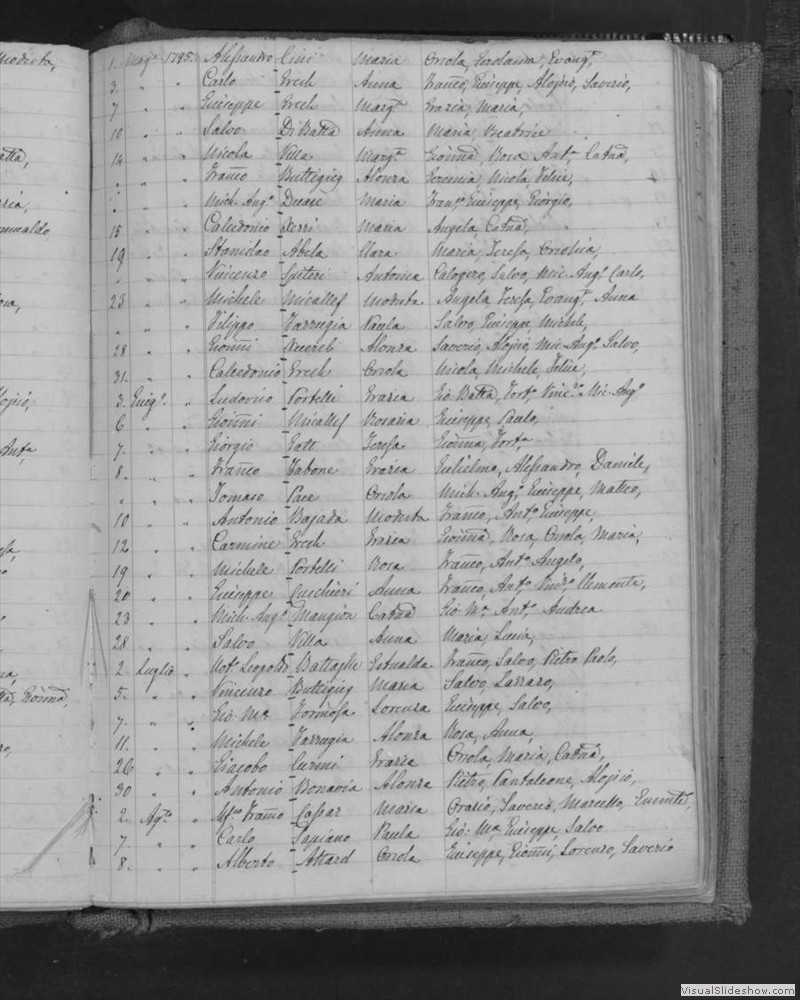 Modesta,
1. Magº 1795. Alessandro Cini Maria Orsola, Gerolama, Evangª
3 " " Carlo Grech Anna Franco, Giuseppe, Aloisio, Saverio,
7 " " Giuseppe Grech Margª Grazia, Maria,
10 " " Salvo Di Batta Anna Maria, Beatrice
14 " " Nicola Villa Margª Gionna, Rosa Antª Catna,
" " " Franco Buttigieg Alonza Geremia, Nicola, Felice,
" " " Mich. Angº Duace Maria Franco Giuseppe, Giorgio,
15 " " Calcedonio Xerri Maria Angela, Catna,
19 " " Stanislao Abela Clara Maria, Teresa,
" " " Vincenzo Spiteri Antonia Calogero, Salvo, Mic. Angº Carlo,
23 " " Michele Micallef Modesta Angela, Teresa, Evangª Anna
" " " Filippo Farrugia Paola Salvo, Giuseppe, Michele,
28 " " Gionni Xuereb Alonza Saverio, Aloisio, Mic. Angº Salvo,
31 " " Calcedonio Grech Orsola Nicola, Michele, Felice,
3. Giugº " Ludovico Portelli Grazia Gio Batta, Fortº Vincº Mic. Angº
6 " " Gionni Micallef Rosaria Giuseppe, Paolo,
7. " " Giorgio Gatt Teresa Gionna, Fortª
8. " " Franco Tabone Grazia Gulielmo, Alessandro, Daniele,
" " " Tomaso Pace Orsola Mich. Angº Giuseppe, Matteo,
10 " " Antonio Bajada Modesta Franco, Antº Giuseppe,
12 " " Carmine Grech Grazia Gionna, Rosa, Orsola, Maria,
19 " " Michele Portelli Rosa Franco, Antº Angelo,
20 " " Giuseppe Cuschieri Anna Franco, Antº Vincº Clemente,
23 " " Mich. Angº Mangion Catna Gio Mª Antº Andrea
28 " " Salvo Villa Anna Maria, Lucia,
2. Luglio " Notº Leopoldo Battaglie Franco, Salvo, Pietro Paolo,
5. " " Vincenzo Buttigieg Maria Salvo, Lazzaro,
7. " " Gio Mª Formosa Lorenza Giuseppe, Salvo,
11. " " Michele Farrugia Alonza Rosa, Anna,
26 " " Giacobo Curmi Grazia Orsola, Maria, Catna,
30 " " Antonio Bonavia Alonza Pietro, Pantaleone, Aloisio,
2. Agº " Franco Cassar Maria Orazio, Saverio, Marcello,
7. " " Carlo Sapiano Paula Gio Mª Giuseppe, Salvo
8. " " Alberto Attard Orsola Giuseppe, Gionni, Lorenzo, Saverio
VisualSlideshow.com